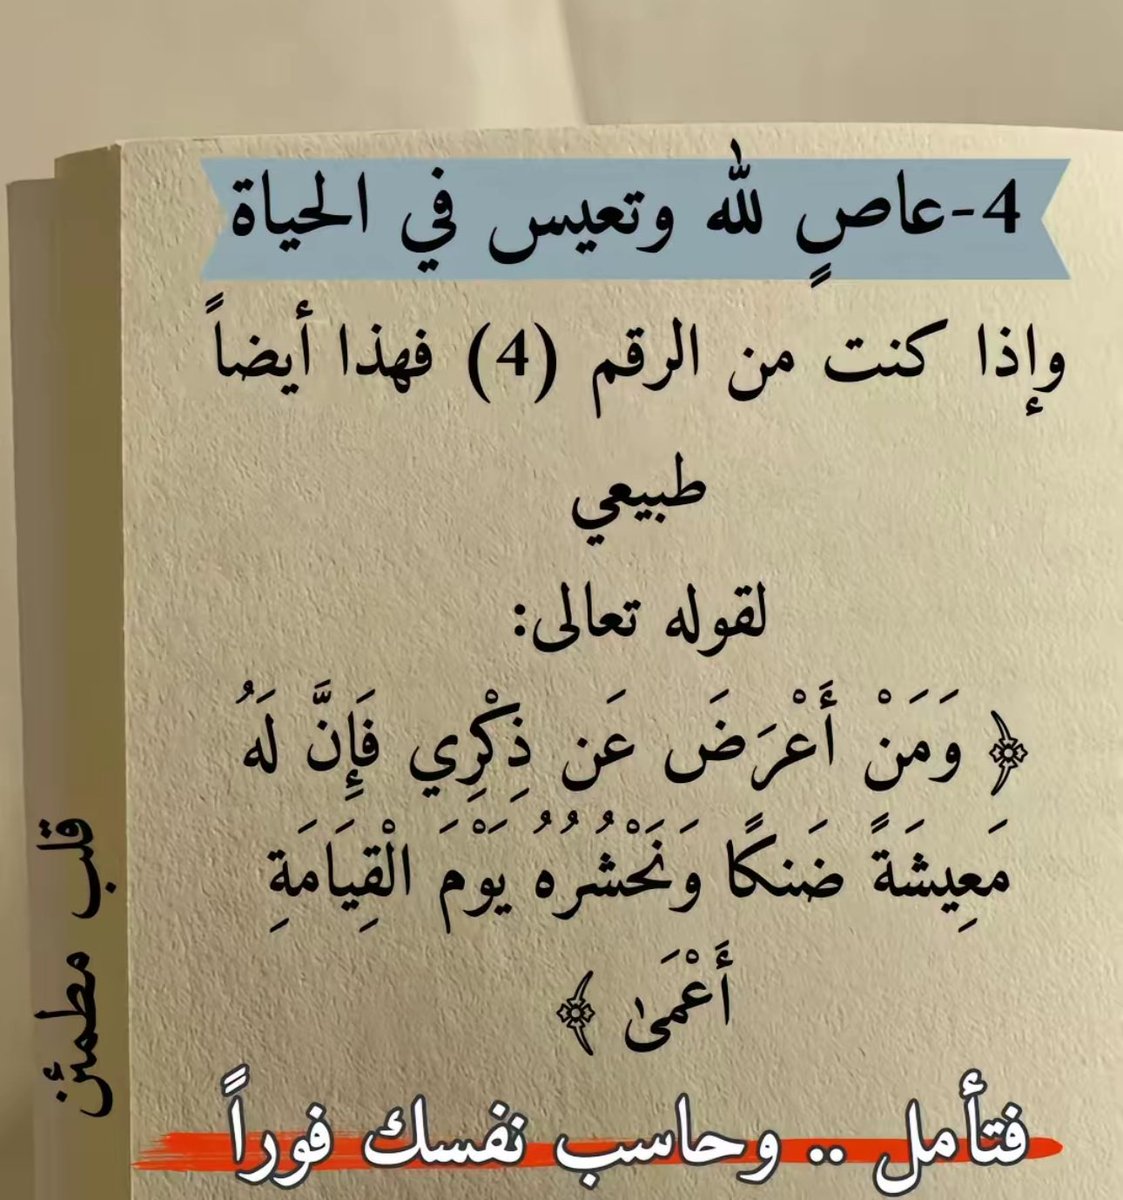 4-عاصٍ لله وتعيس في الحياة
وإذا كنت من الرقم (4) فهذا أيضاً
طبيعي
لقوله تعالى:
﴿ وَمَنْ أَعْرَضَ عَن ذِكْرِي فَإِنَّ لَهُ
مَعِيشَةً ضَنكًا وَنَحْشُرُهُ يَوْمَ الْقِيَامَةِ
أَعْمَىٰ ﴾
فتأمل .. وحاسب نفسك فوراً
قلب مطمئن